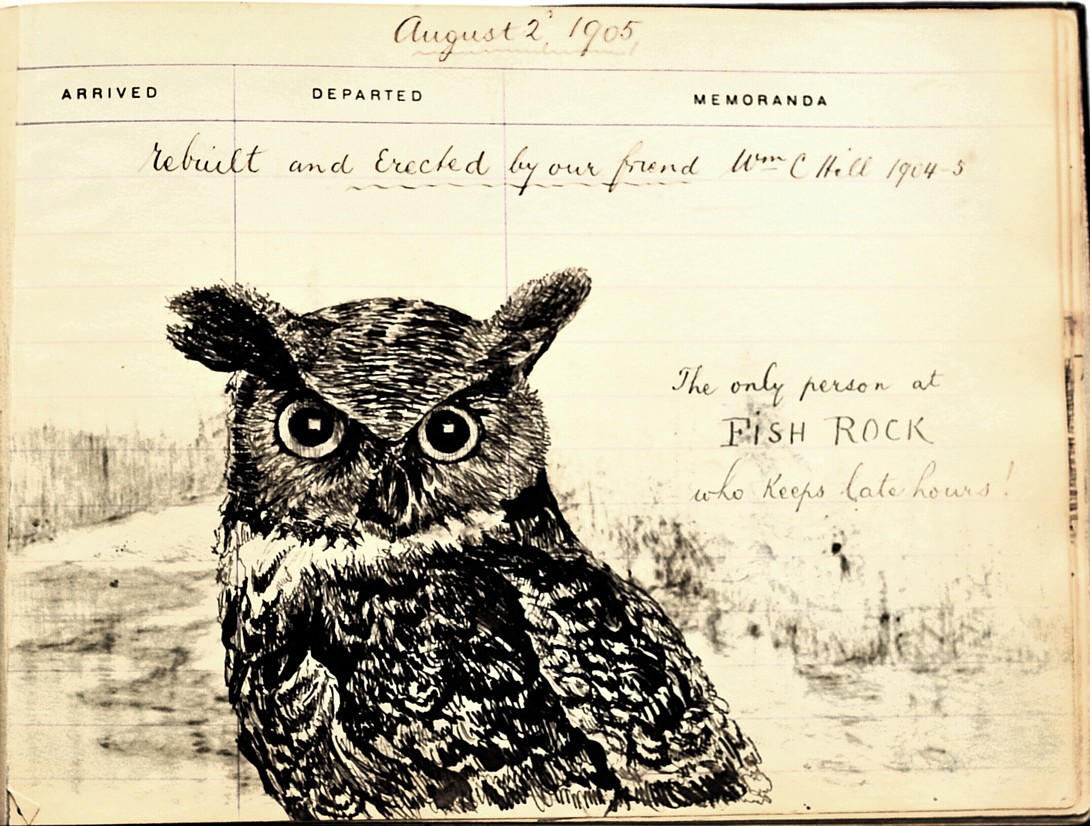 August 2, 1905
ARRIVED DEPARTED MEMORANDA
rebuilt and Erected by our friend Wm C Hill 1904-5
The only person at
FISH ROCK
who Keeps late hours!